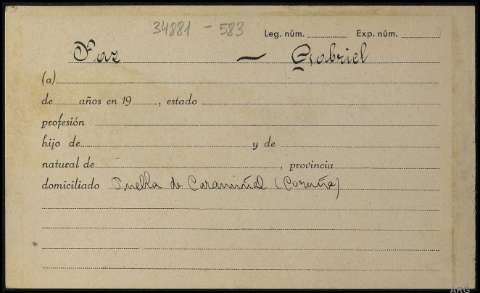 34881 - 583
Leg. núm. Exp. núm.
Paz — Gabriel
(a)
de años en 19 , estado
profesión
hijo de y de
natural de , provincia
domiciliado Puebla de Caramiñal (Coruña)
ARG